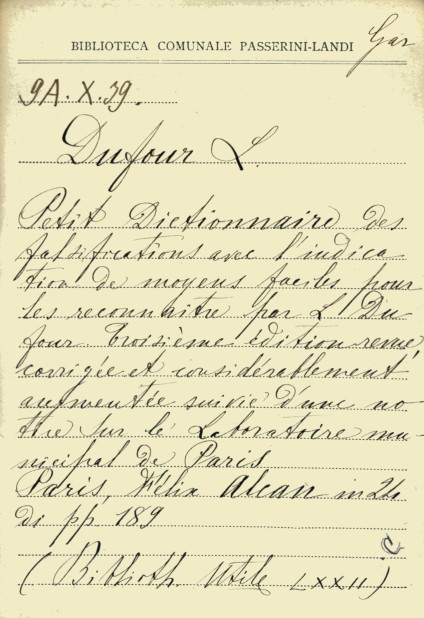 BIBLIOTECA COMUNALE PASSERINI-LANDI
Gar
9A.X.39.
Dufour L.
Petit Dictionnaire des
falsifications avec l'indica
tion de moyens faciles pour
les reconnaitre par L Du
four Troisième édition revue
corrigée et considérablement
augmentée suivie d'une no
tice sur le Laboratoire mu
nicipal de Paris
Paris, Félix Alcan in 24
di pp 189
(Biblioth. Utile LXXII)